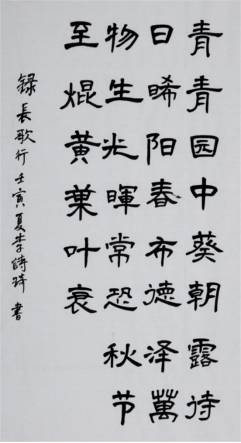 青青园中葵朝露待
日晞阳春布德泽萬
物生光暉常恐秋节
至焜黄葉叶衰
録長歌行壬寅夏李琦書